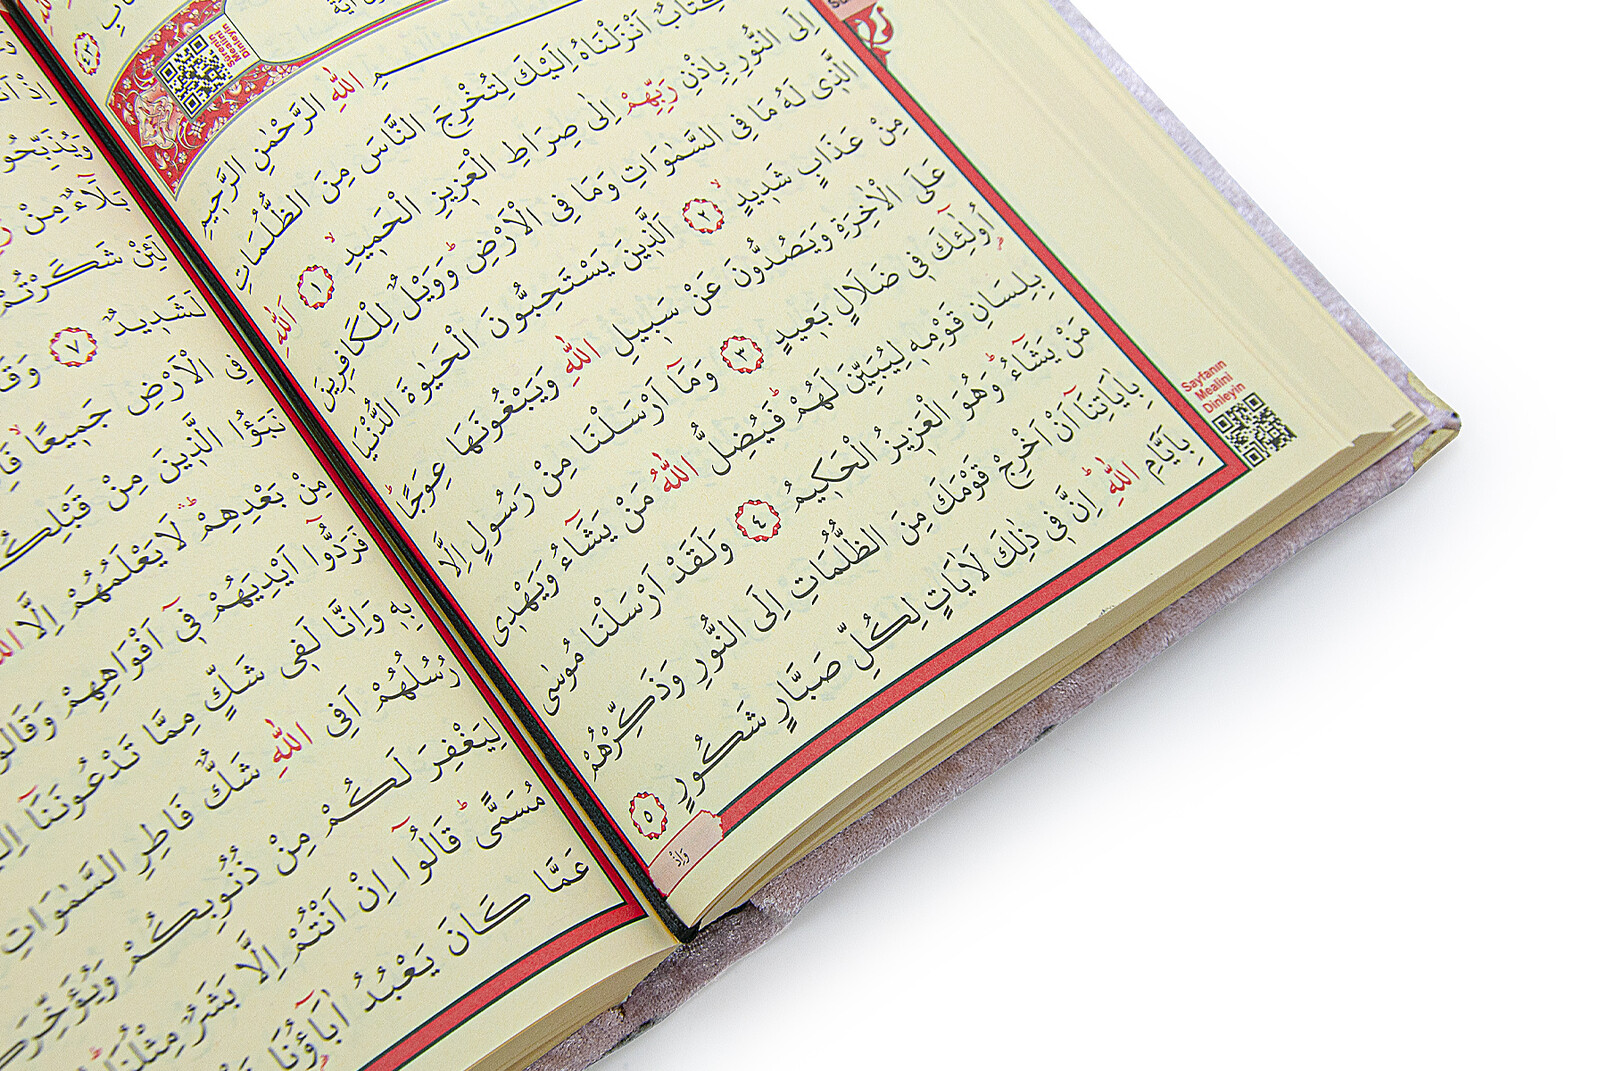 Surenin
Mealini
Dinleyin
اللّٰهِ الرَّحْمٰنِ الرَّحِيمِ
كِتَابٌ اَنْزَلْنَاهُ اِلَيْكَ لِتُخْرِجَ النَّاسَ مِنَ الظُّلُمَاتِ
اِلَى النُّورِ بِاِذْنِ رَبِّهِمْ اِلٰى صِرَاطِ الْعَزِيزِ الْحَمِيدِۙ ﴿١﴾ اَللّٰهِ
الَّذٖى لَهُ مَا فِى السَّمٰوَاتِ وَمَا فِى الْاَرْضِۜ وَوَيْلٌ لِلْكَافِرٖينَ
مِنْ عَذَابٍ شَدٖيدٍۙ ﴿٢﴾ اَلَّذٖينَ يَسْتَحِبُّونَ الْحَيٰوةَ الدُّنْيَا
عَلَى الْاٰخِرَةِ وَيَصُدُّونَ عَنْ سَبٖيلِ اللّٰهِ وَيَبْغُونَهَا عِوَجًاۜ
اُو۬لٰٓئِكَ فٖى ضَلَالٍ بَعٖيدٍ ﴿٣﴾ وَمَٓا اَرْسَلْنَا مِنْ رَسُولٍ اِلَّا
بِلِسَانِ قَوْمِهٖ لِيُبَيِّنَ لَهُمْۜ فَيُضِلُّ اللّٰهُ مَنْ يَشَٓاءُ وَيَهْدٖى
مَنْ يَشَٓاءُۜ وَهُوَ الْعَزٖيزُ الْحَكٖيمُ ﴿٤﴾ وَلَقَدْ اَرْسَلْنَا مُوسٰى
بِاٰيَاتِنَٓا اَنْ اَخْرِجْ قَوْمَكَ مِنَ الظُّلُمَاتِ اِلَى النُّورِ وَذَكِّرْهُمْ
بِاَيَّامِ اللّٰهِۜ اِنَّ فٖى ذٰلِكَ لَاٰيَاتٍ لِكُلِّ صَبَّارٍ شَكُورٍ ﴿٥﴾
وَاِذْ
Sayfanın
Mealini
Dinleyin
وَيُذَبِّحُو
بَلَٓاءٌ مِنْ
لَئِنْ شَكَرْتُمْ
لَشَدٖيدٌ ﴿٧﴾ وَقَا
فِى الْاَرْضِ جَمٖيعًاۙ فَاِ
نَبَؤُا الَّذٖينَ مِنْ قَبْلِكُ
مِنْ بَعْدِهِمْۜ لَا يَعْلَمُهُمْ اِلَّا اللّٰ
فَرَدُّٓوا اَيْدِيَهُمْ فٖٓى اَفْوَاهِهِمْ وَقَالُو
بِهٖ وَاِنَّا لَفٖى شَكٍّ مِمَّا تَدْعُونَنَٓا اِلَ
رُسُلُهُمْ اَفِى اللّٰهِ شَكٌّ فَاطِرِ السَّمٰوَاتِ
لِيَغْفِرَ لَكُمْ مِنْ ذُنُوبِكُمْ وَيُؤَخِّرَكُ
مُسَمًّىۜ قَالُٓوا اِنْ اَنْتُمْ اِلَّا بَشَرٌ مِثْلُنَاۜ
عَمَّا كَانَ يَعْبُدُ اٰبَٓاؤُ۬نَا